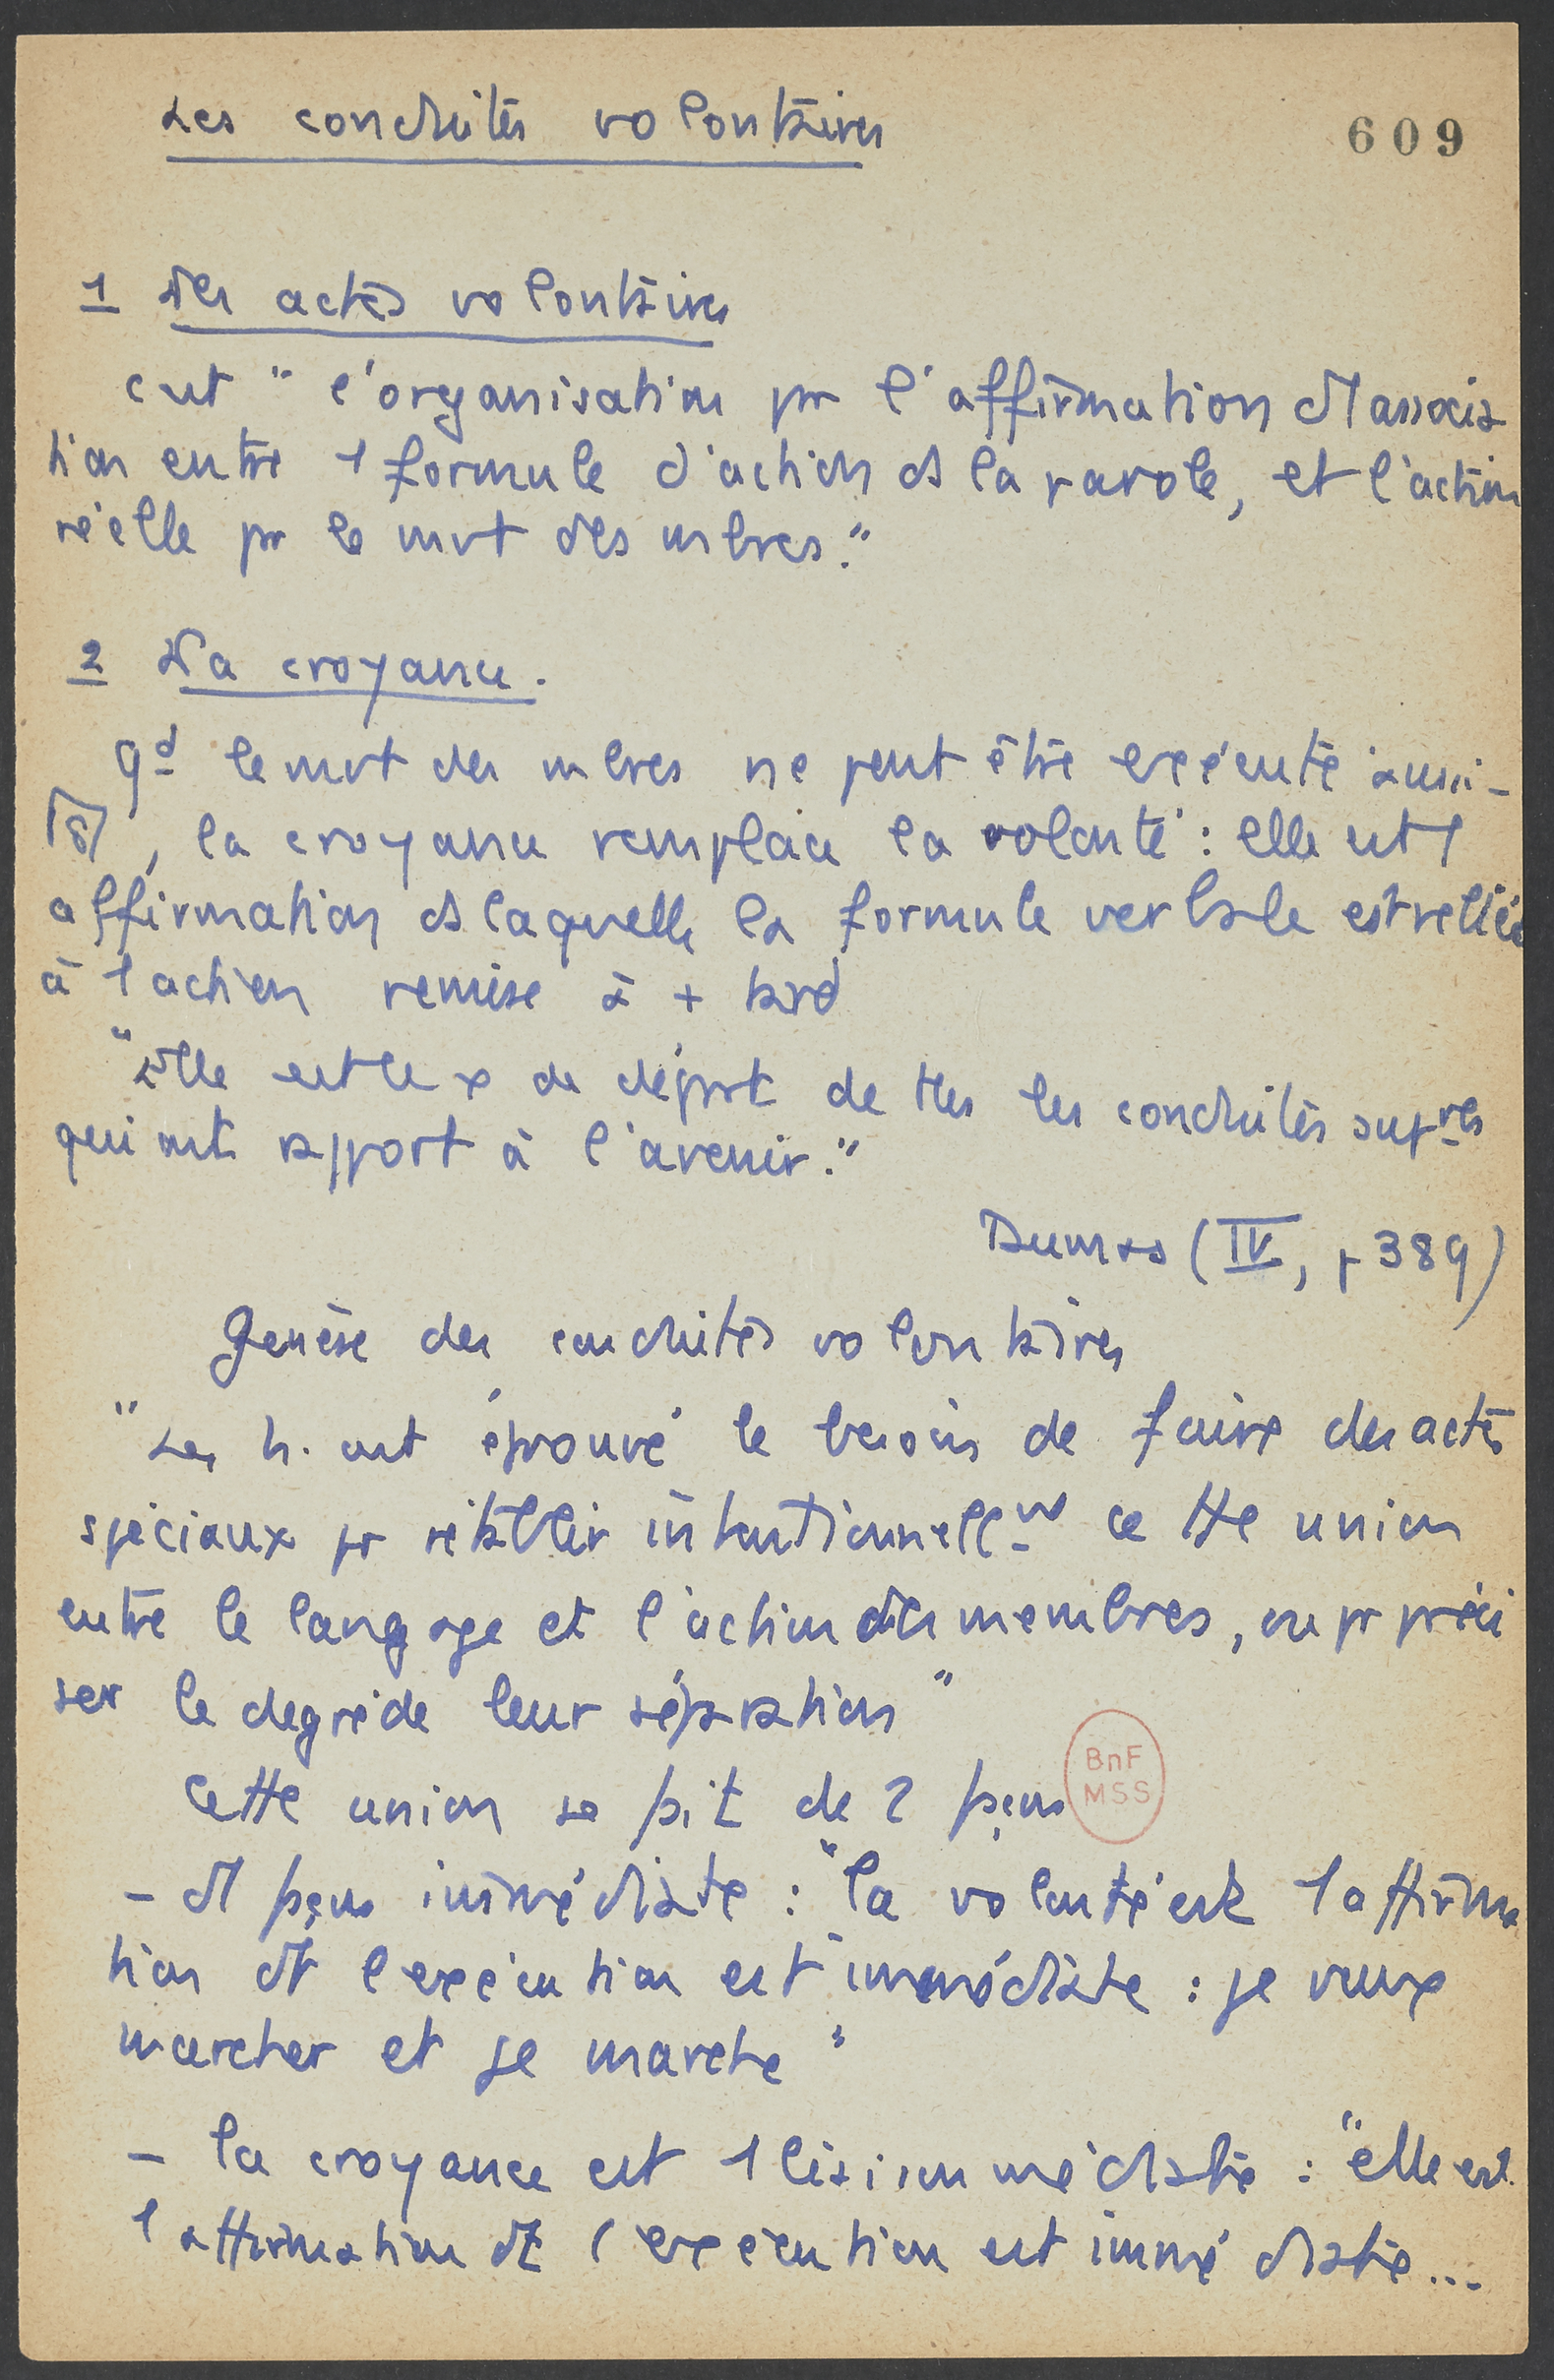 Les conduites volontaires
609
1 Les actes volontaires
c'est "l'organisation pr l'affirmation d'1 associa
tion entre 1 formule d'action ds la parole, et l'action
réelle pr le mvt des mbres."
2 La croyance.
Qd le mvt des mbres ne peut être exécuté aussi-
, la croyance remplace la volonté : elle est 1
affirmation ds laquelle la formule verbale est reliée
à 1 action remise à + tard
"Elle est le x de départ de ttes les conduites supres
qui ont rapport à l'avenir."
Dumas (IV, p 389)
Genèse des conduites volontaires
"Les h. ont éprouvé le besoin de faire des actes
spéciaux pr rétablir intentionnellt cette union
entre le langage et l'action des membres, ou pr préci
ser le degré de leur séparation"
Cette union se fait de 2 façons
BnF
MSS
- d'1 façon immédiate : "la volonté est 1 affirma
tion dt l'exécution est immédiate : je veux
marcher et je marche"
- la croyance est 1 liaison médiate : "elle est
1 affirmation dt l'exécution est immédiate...